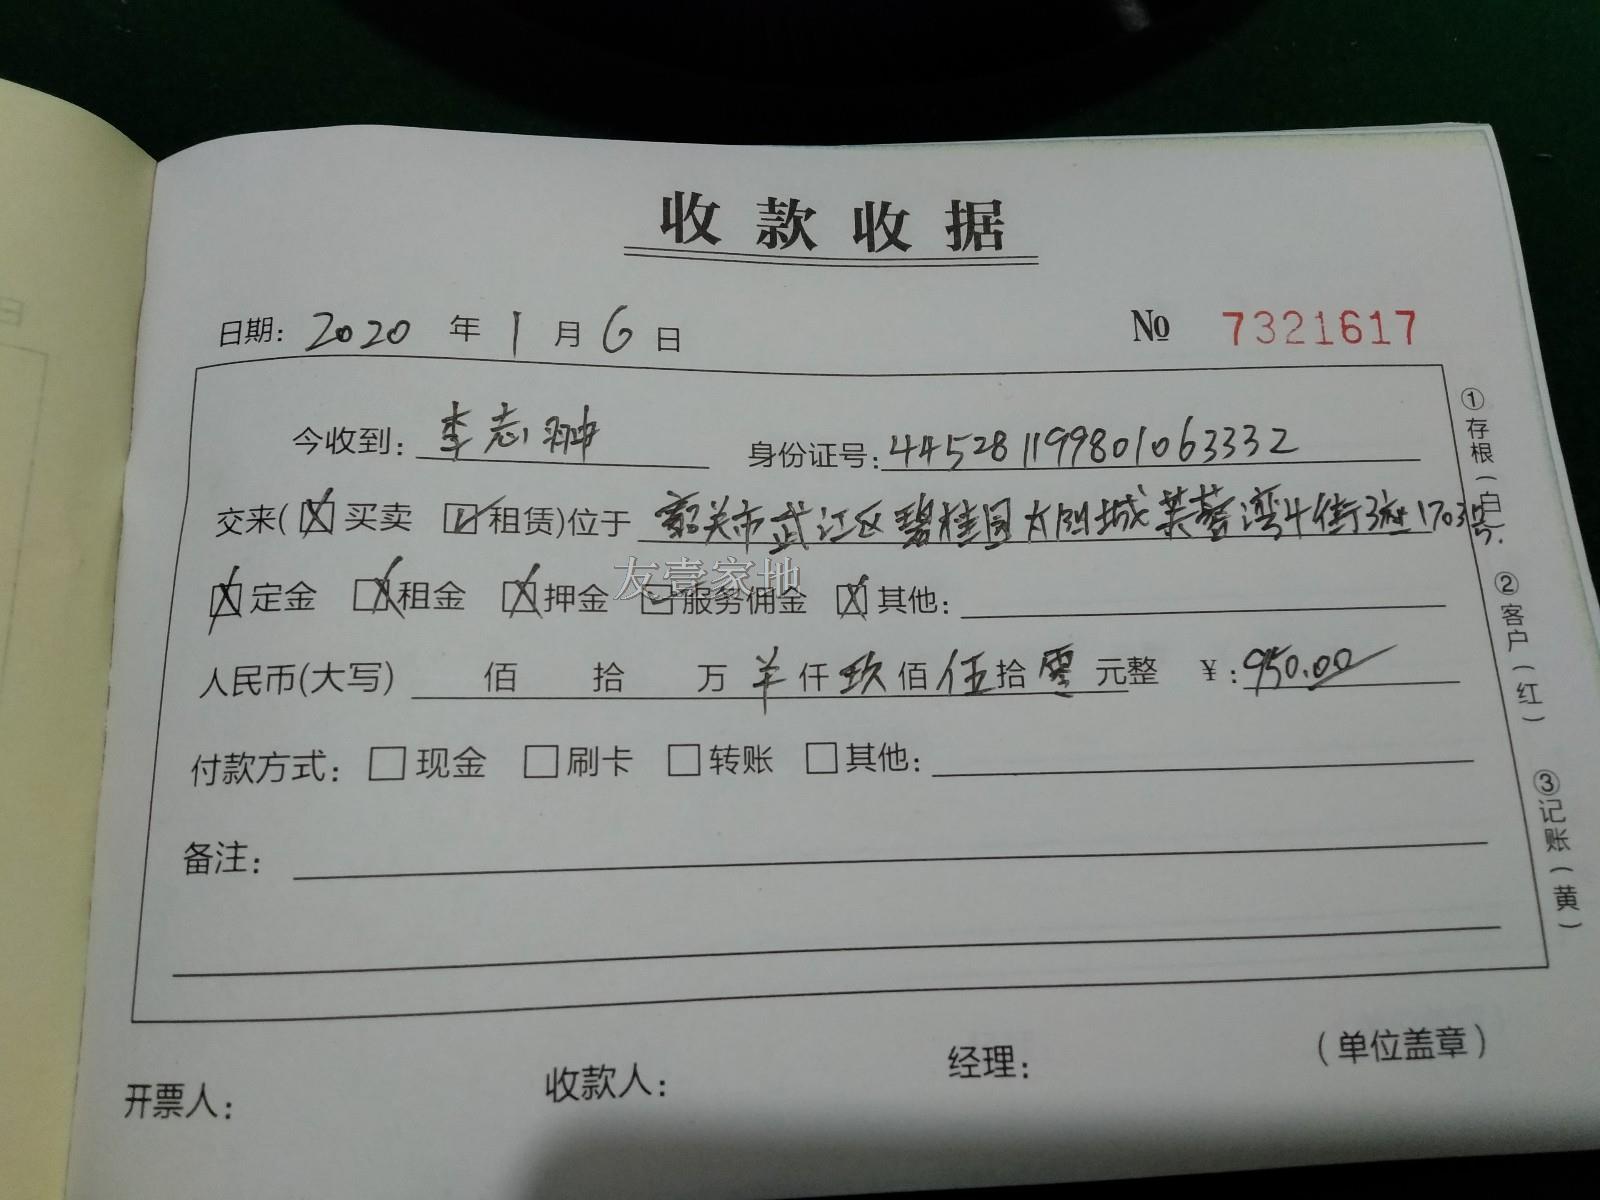 收款收据
日期: 2020 年 1 月 6 日 № 7321617
今收到: 李志翀 身份证号: 445281199801063332
交来(☒买卖 ☑租赁)位于 韶关市武江区碧桂园太阳城芙蓉湾十街3座1703号.
☒定金 ☒租金 ☒押金 ☑服务佣金 ☒其他:
友壹家地
人民币(大写) 佰 拾 万 羊 仟 玖 佰 伍 拾 零 元整 ¥: 950.00
付款方式: □现金 □刷卡 □转账 □其他:
备注:
开票人: 收款人: 经理: (单位盖章)
①存根(白)
②客户(红)
③记账(黄)